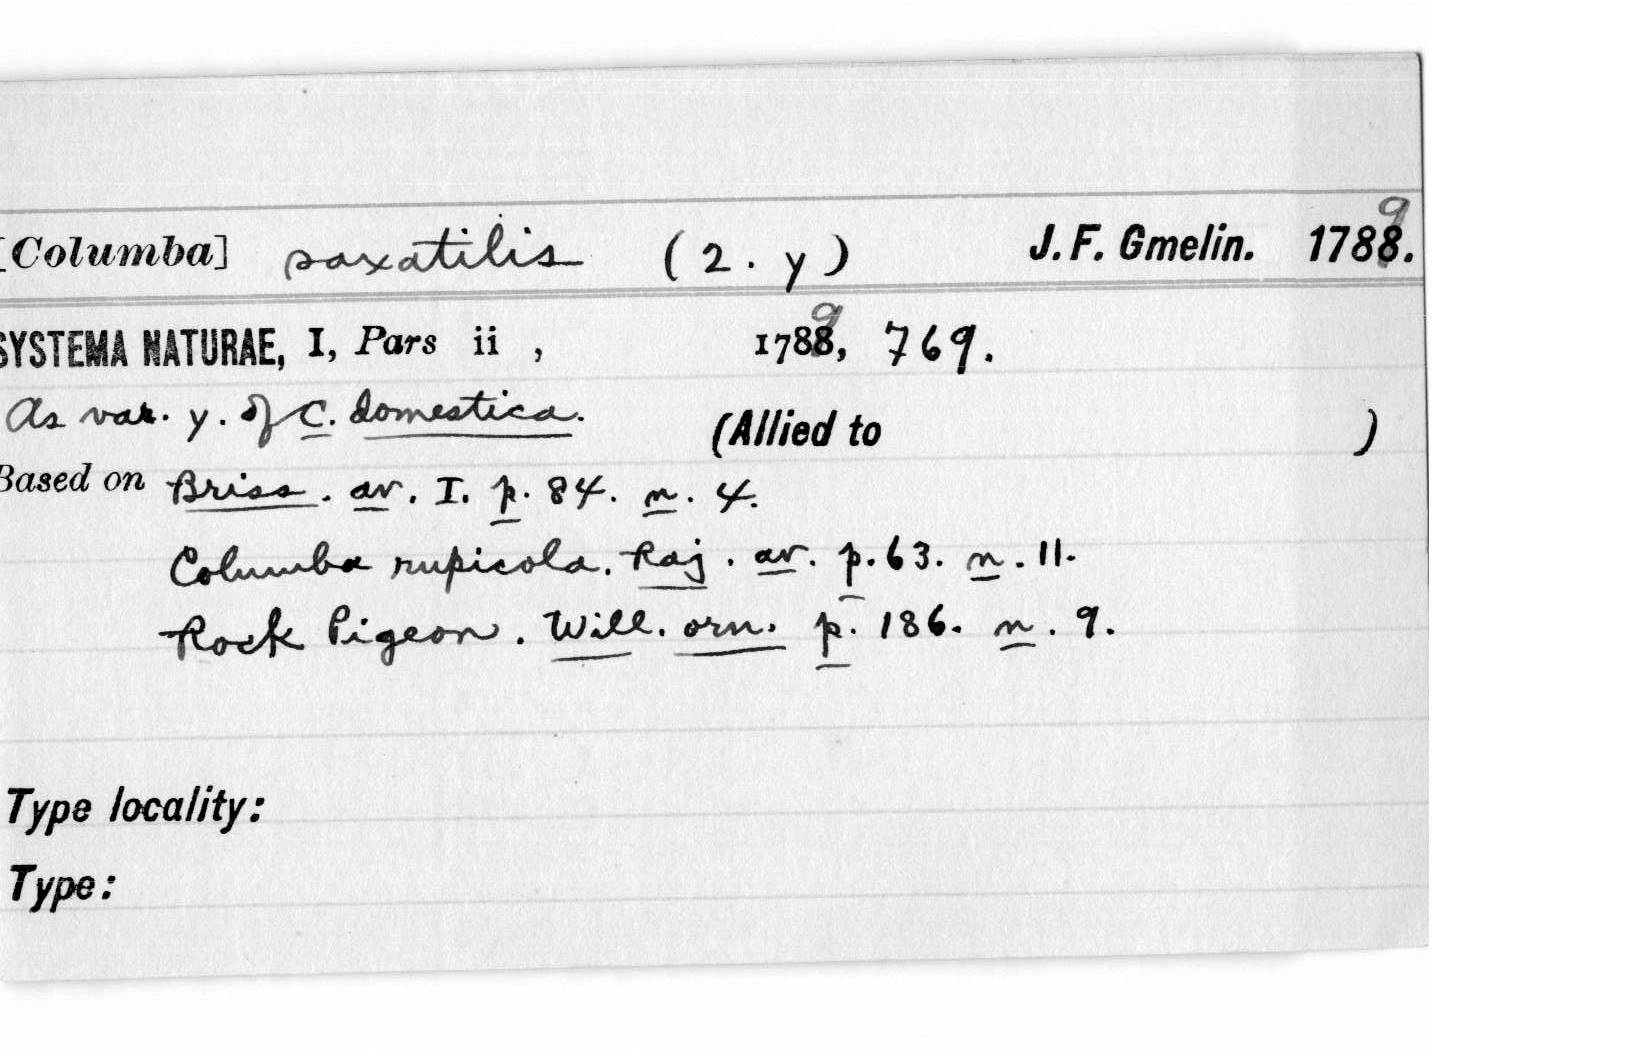 [Columba] saxatilis (2. γ) J. F. Gmelin. 1788. 9
SYSTEMA NATURAE, I, Pars ii , 1788, 9 769.
As var. γ. of C. domestica. (Allied to )
Based on Briss. av. I. p. 84. n. 4.
Columba rupicola. Raj. av. p. 63. n. 11.
Rock Pigeon. Will. orn. p. 186. n. 9.
Type locality:
Type: